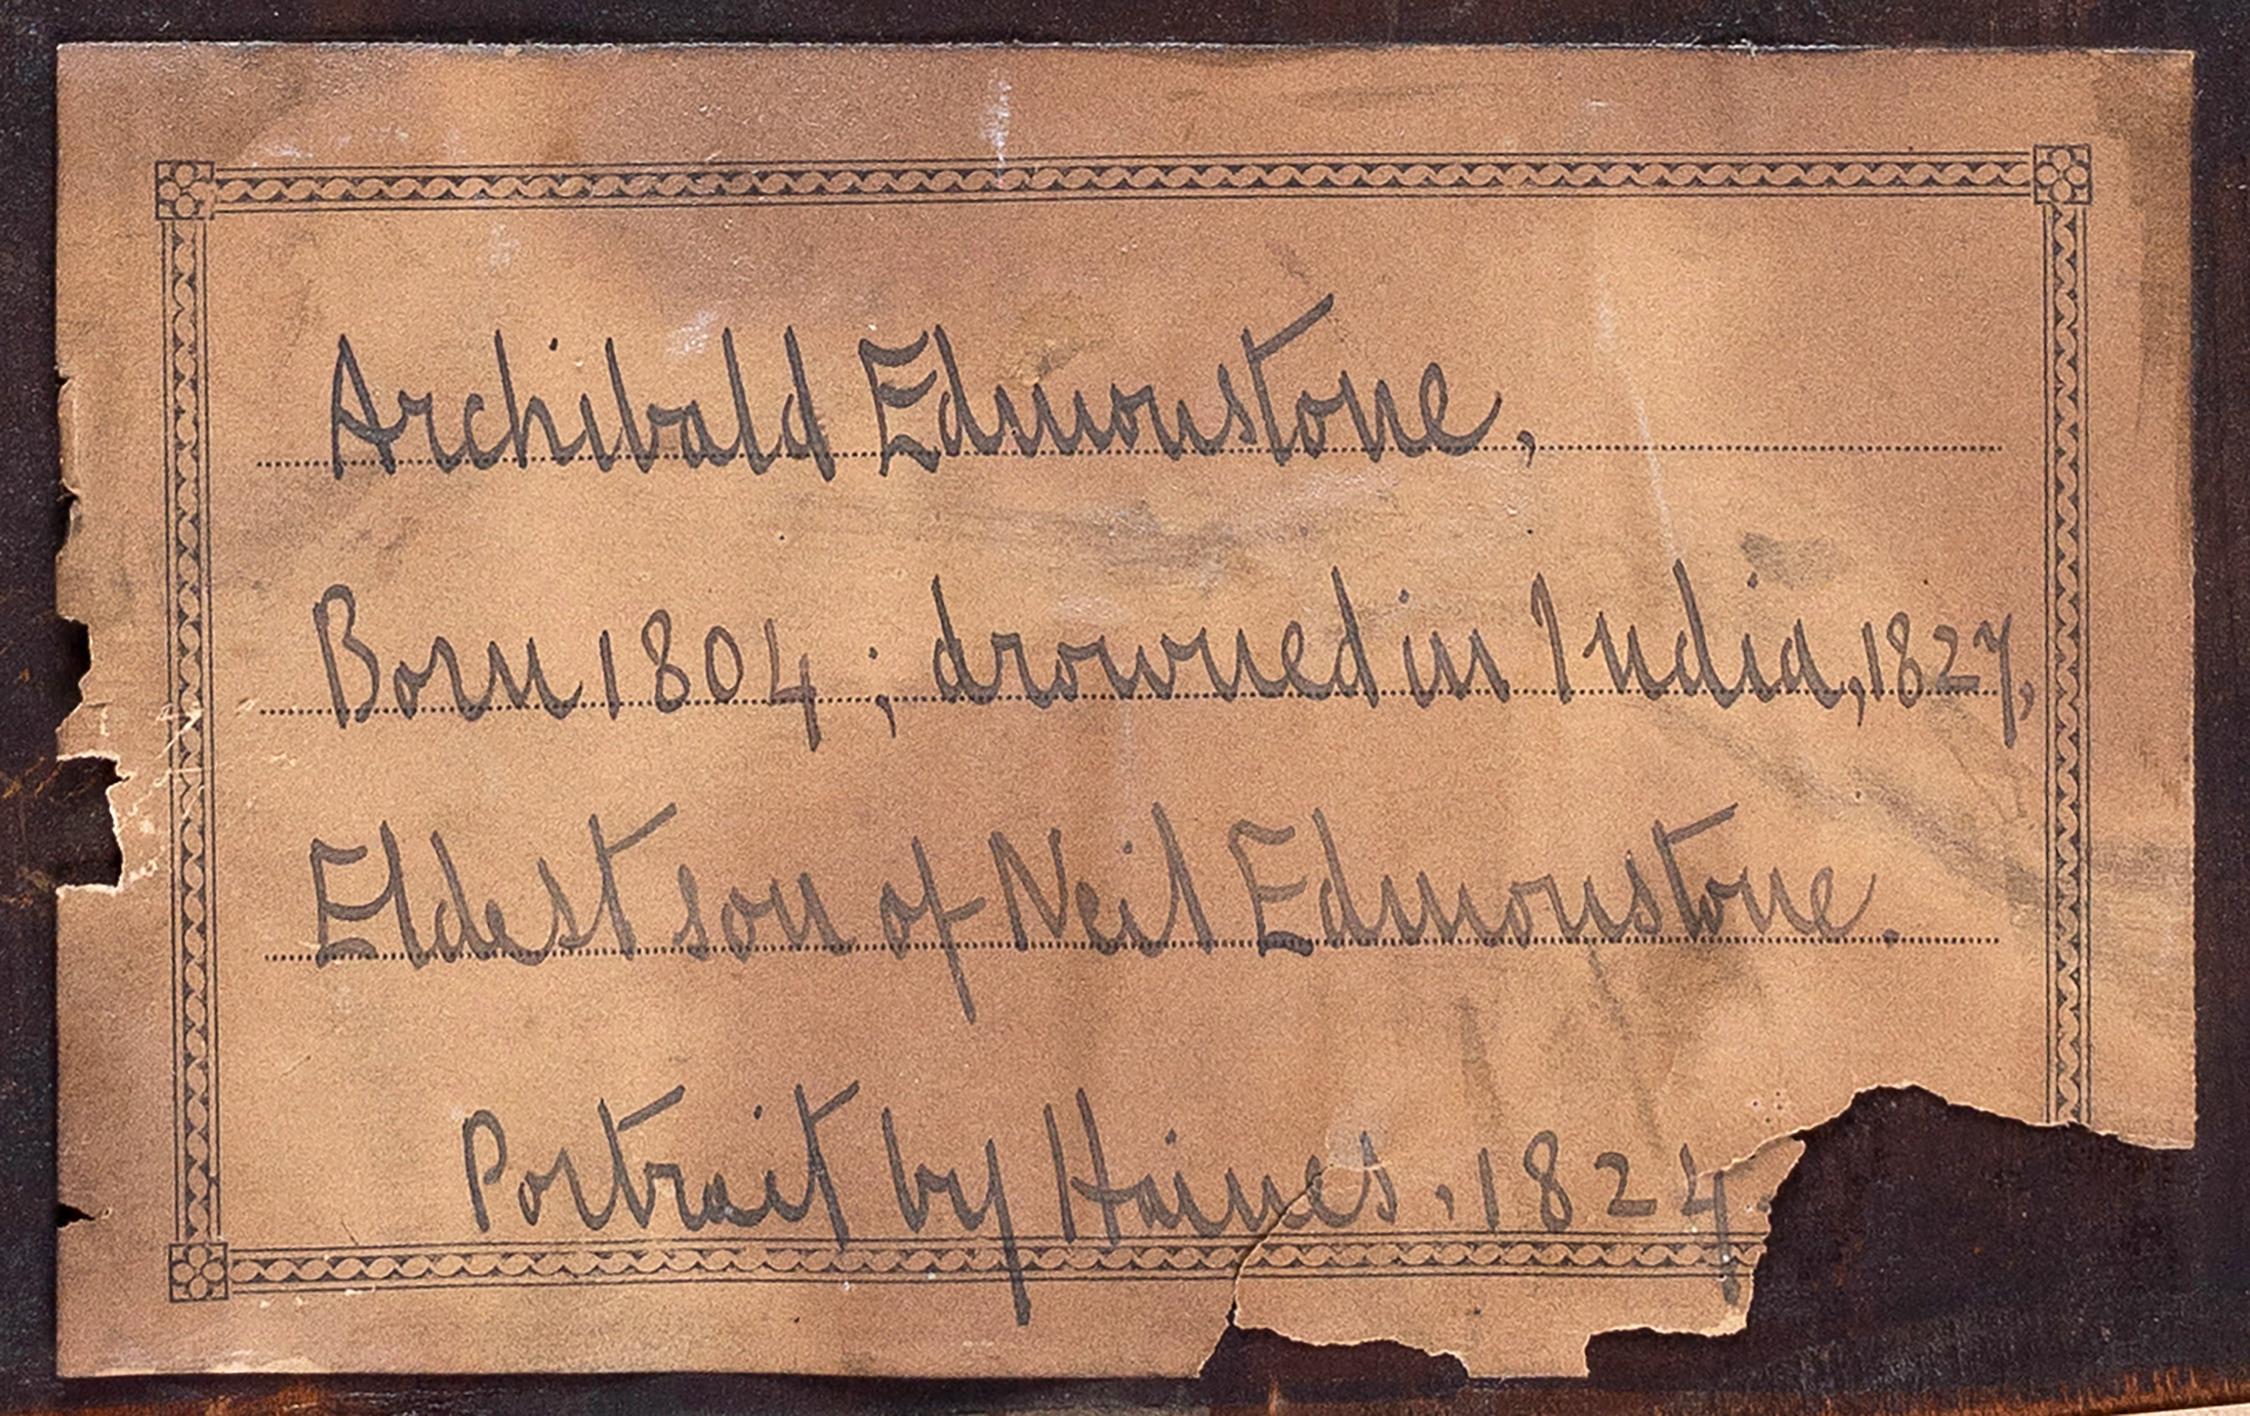 Archibald Edmonstone,
Born 1804; drowned in India, 1827,
Eldest son of Neil Edmonstone.
Portrait by Haines, 1824.